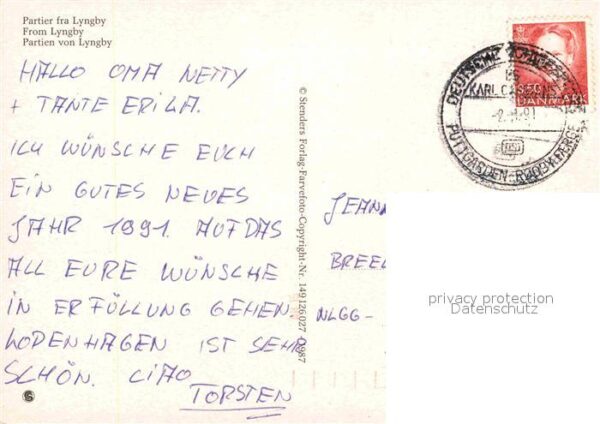 Partier fra Lyngby
From Lyngby
Partien von Lyngby
HALLO OMA NETTY
+ TANTE ERIKA.
ICH WÜNSCHE EUCH
EIN GUTES NEUES
JAHR 1991. AUF DAS
ALL EURE WÜNSCHE
IN ERFÜLLUNG GEHEN.
KOPENHAGEN IST SEHR
SCHÖN. CIAO
TORSTEN
© Stenders Forlag-Farvefoto-Copyright-Nr. 149 126 027 ©987
DEUTSCHE
KARL CARSTENS
PUTTGARDEN-RØDBY FÆRGE
DANMARK
JEANN
BREE
NLGG-
privacy protection
Datenschutz